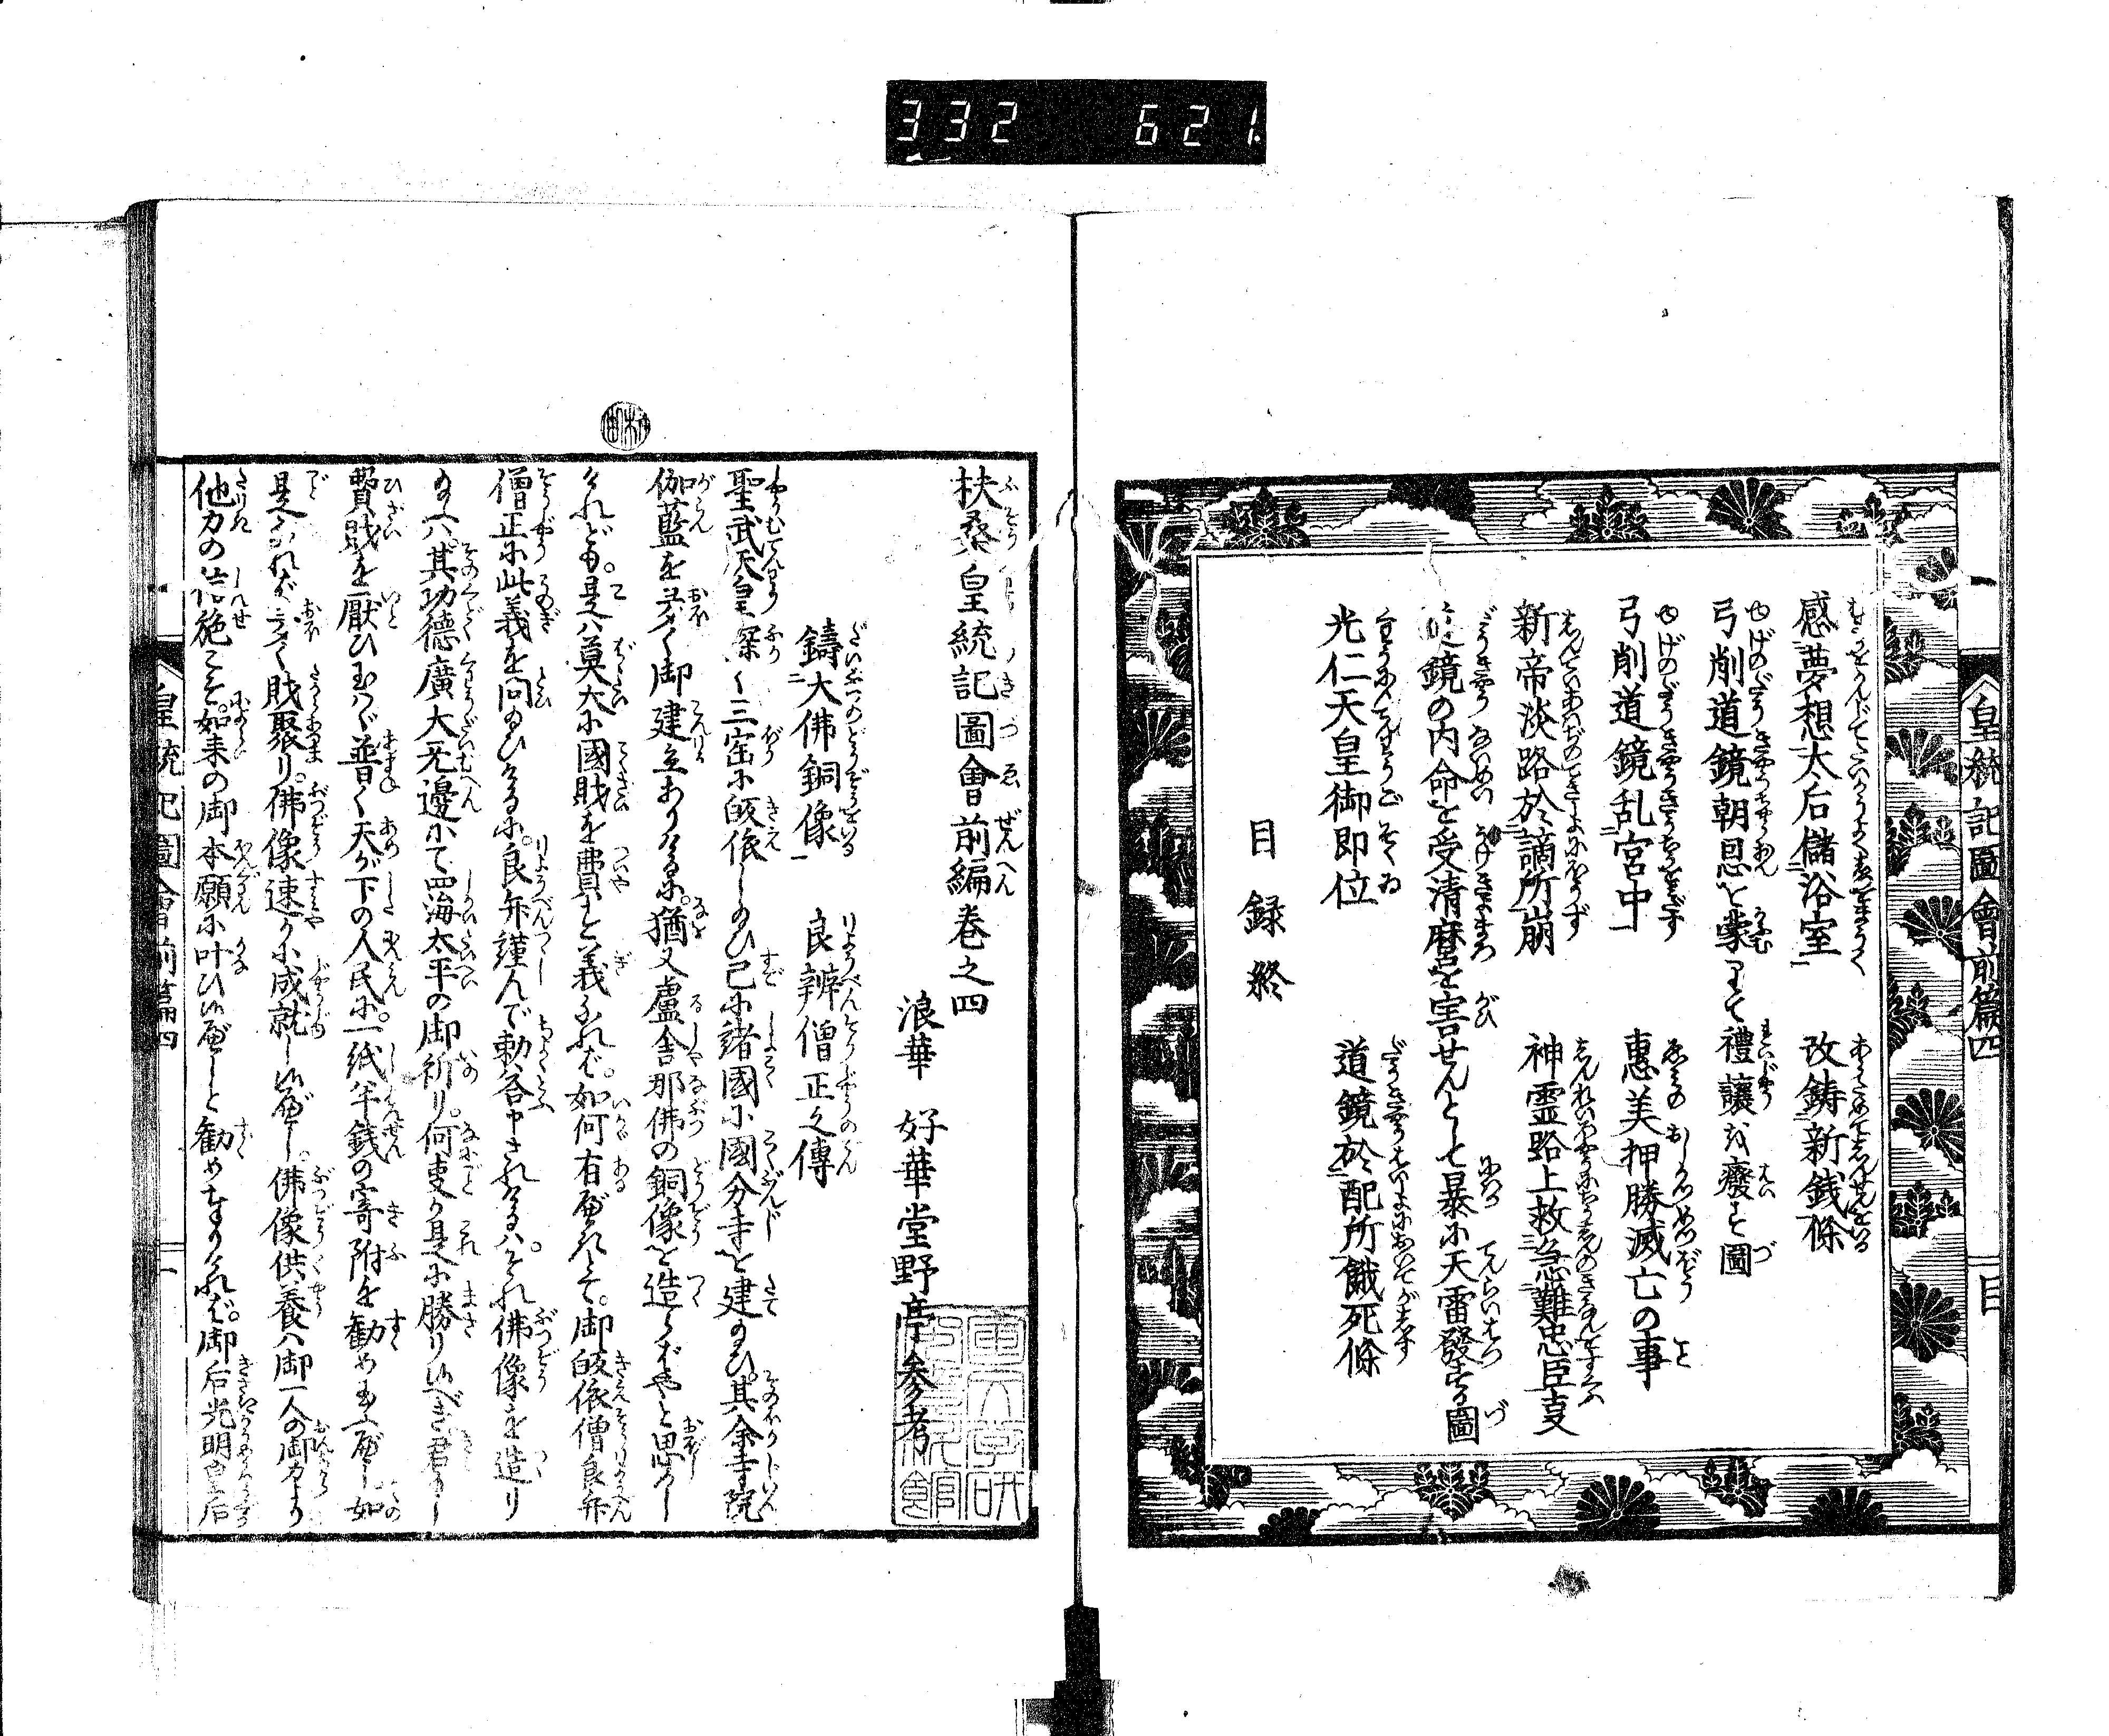 332 621
皇統記圖會前篇四
目
感夢想太后儲浴室 改鋳新銭條
弓削道鏡朝恩を蒙りて禮譲を癈す圖
弓削道鏡乱宮中 惠美押勝滅亡の事
新帝淡路於謫所崩 神霊路上救急難忠臣支
道鏡の内命を受清麿を害せんとして暴に天雷發する圖
光仁天皇御即位 道鏡於配所餓死條
目録終
扶桑皇統記圖會前編巻之四
浪華 好華堂野亭参考
鋳大佛銅像 良辨僧正之傳
聖武天皇深く三宝に皈依し給ひ已に諸國に國分寺を建給ひ其余寺院
伽藍を多く御建立ありけるに。猶又盧舎那佛の銅像を造らばやと思召
けれども。是ハ莫大に國財を費と義なれバ。如何有べきとて。御皈依僧良弁
僧正に此義を問給ひけるに。良弁謹んで勅答申されけるハ。それ佛像を造り
給ハ其功徳廣大无邊にて四海太平の御祈り。何事か是に勝り候べき君もし
費財を厭ひ玉ハヾ普く天が下の人民に。一紙半銭の寄附を勧め玉ふべし如
是なれバ多く財聚り佛像速かに成就し候べし。佛像供養ハ御一人の御力より
他力の信施こそ。如来の御本願に叶ひ候べしと勧め奉りけれバ。御后光明皇后
皇統記圖會前篇四